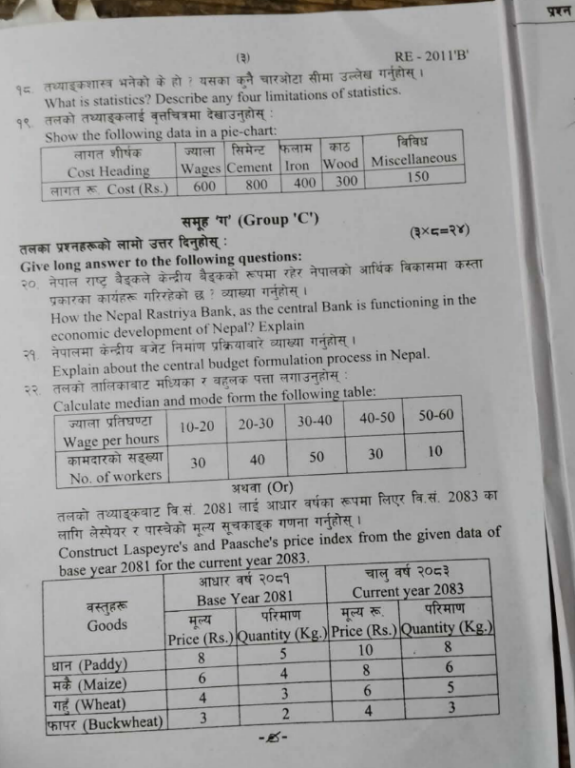 प्रश्न
(३)
RE - 2011'B'
१८. तथ्याङ्कशास्त्र भनेको के हो ? यसका कुनै चारओटा सीमा उल्लेख गर्नुहोस् ।
What is statistics? Describe any four limitations of statistics.
१९. तलको तथ्याङ्कलाई वृत्तचित्रमा देखाउनुहोस् :
Show the following data in a pie-chart:
लागत शीर्षक ज्याला सिमेन्ट फलाम काठ विविध
Cost Heading Wages Cement Iron Wood Miscellaneous
लागत रू. Cost (Rs.) 600 800 400 300 150
समूह 'ग' (Group 'C')
तलका प्रश्नहरूको लामो उत्तर दिनुहोस् : (३×८=२४)
Give long answer to the following questions:
२०. नेपाल राष्ट्र बैङ्कले केन्द्रीय बैङ्कको रूपमा रहेर नेपालको आर्थिक विकासमा कस्ता
प्रकारका कार्यहरू गरिरहेको छ ? व्याख्या गर्नुहोस् ।
How the Nepal Rastriya Bank, as the central Bank is functioning in the
economic development of Nepal? Explain
२१. नेपालमा केन्द्रीय बजेट निर्माण प्रक्रियाबारे व्याख्या गर्नुहोस् ।
Explain about the central budget formulation process in Nepal.
२२. तलको तालिकाबाट मध्यिका र बहुलक पत्ता लगाउनुहोस् :
Calculate median and mode form the following table:
ज्याला प्रतिघण्टा
Wage per hours 10-20 20-30 30-40 40-50 50-60
कामदारको सङ्ख्या
No. of workers 30 40 50 30 10
अथवा (Or)
तलको तथ्याङ्कबाट वि सं. 2081 लाई आधार वर्षका रूपमा लिएर वि.सं. 2083 का
लागि लेस्पेयर र पास्चेको मूल्य सूचकाङ्क गणना गर्नुहोस् ।
Construct Laspeyre's and Paasche's price index from the given data of
base year 2081 for the current year 2083.
वस्तुहरू आधार वर्ष २०८१ चालु वर्ष २०८३
Goods Base Year 2081 Current year 2083
मूल्य परिमाण मूल्य रू. परिमाण
Price (Rs.) Quantity (Kg.) Price (Rs.) Quantity (Kg.)
धान (Paddy) 8 5 10 8
मकै (Maize) 6 4 8 6
गहुँ (Wheat) 4 3 6 5
फापर (Buckwheat) 3 2 4 3